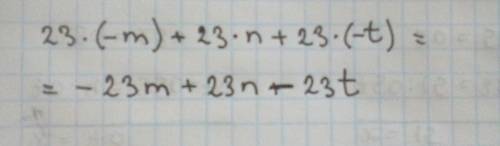 23·(-m) + 23·n + 23·(-t) =
= - 23m + 23n - 23t